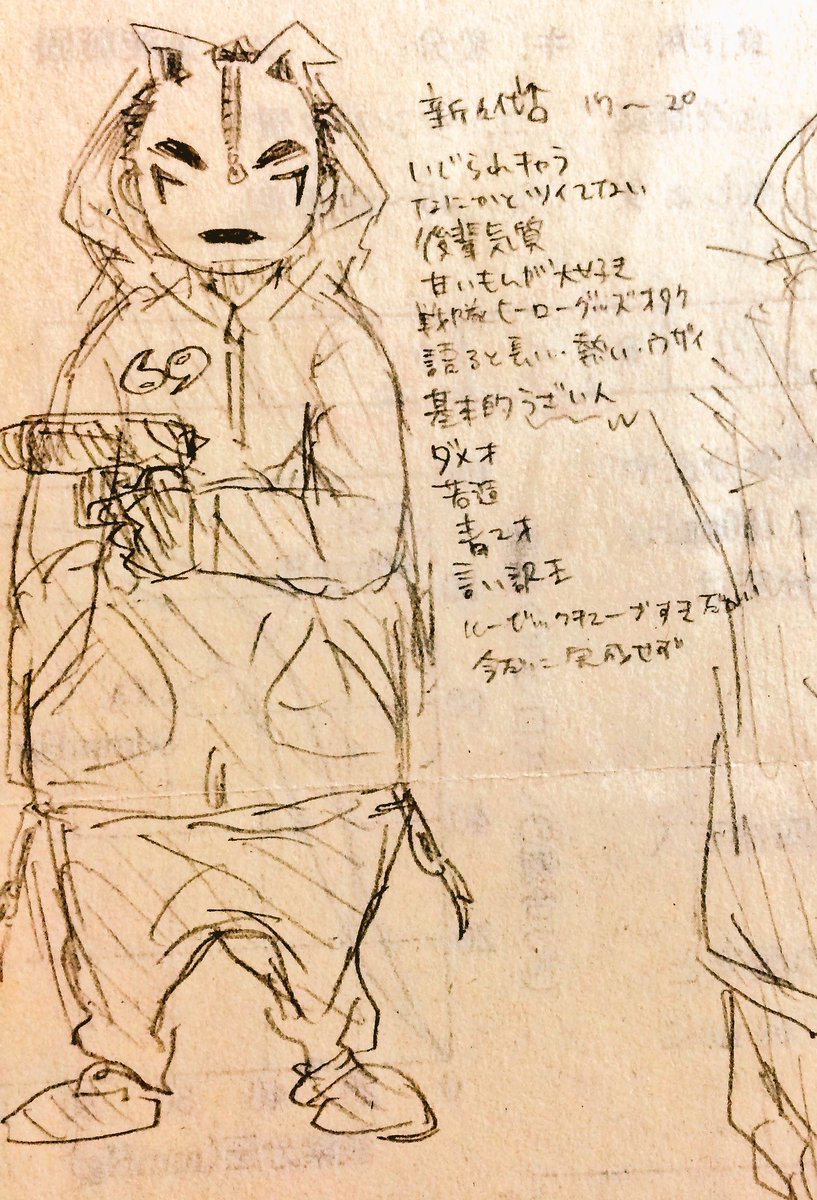 新人代官 17〜20
いじられキャラ
なにかとツイてない
後輩気質
甘いもんが大好き
戦隊ヒーローグッズオタク
語ると長い・熱い・ウザイ
基本的うざい人
ダメオ
若造
青二才
言い訳王
ルービックキューブすき
今だに完成せず
69